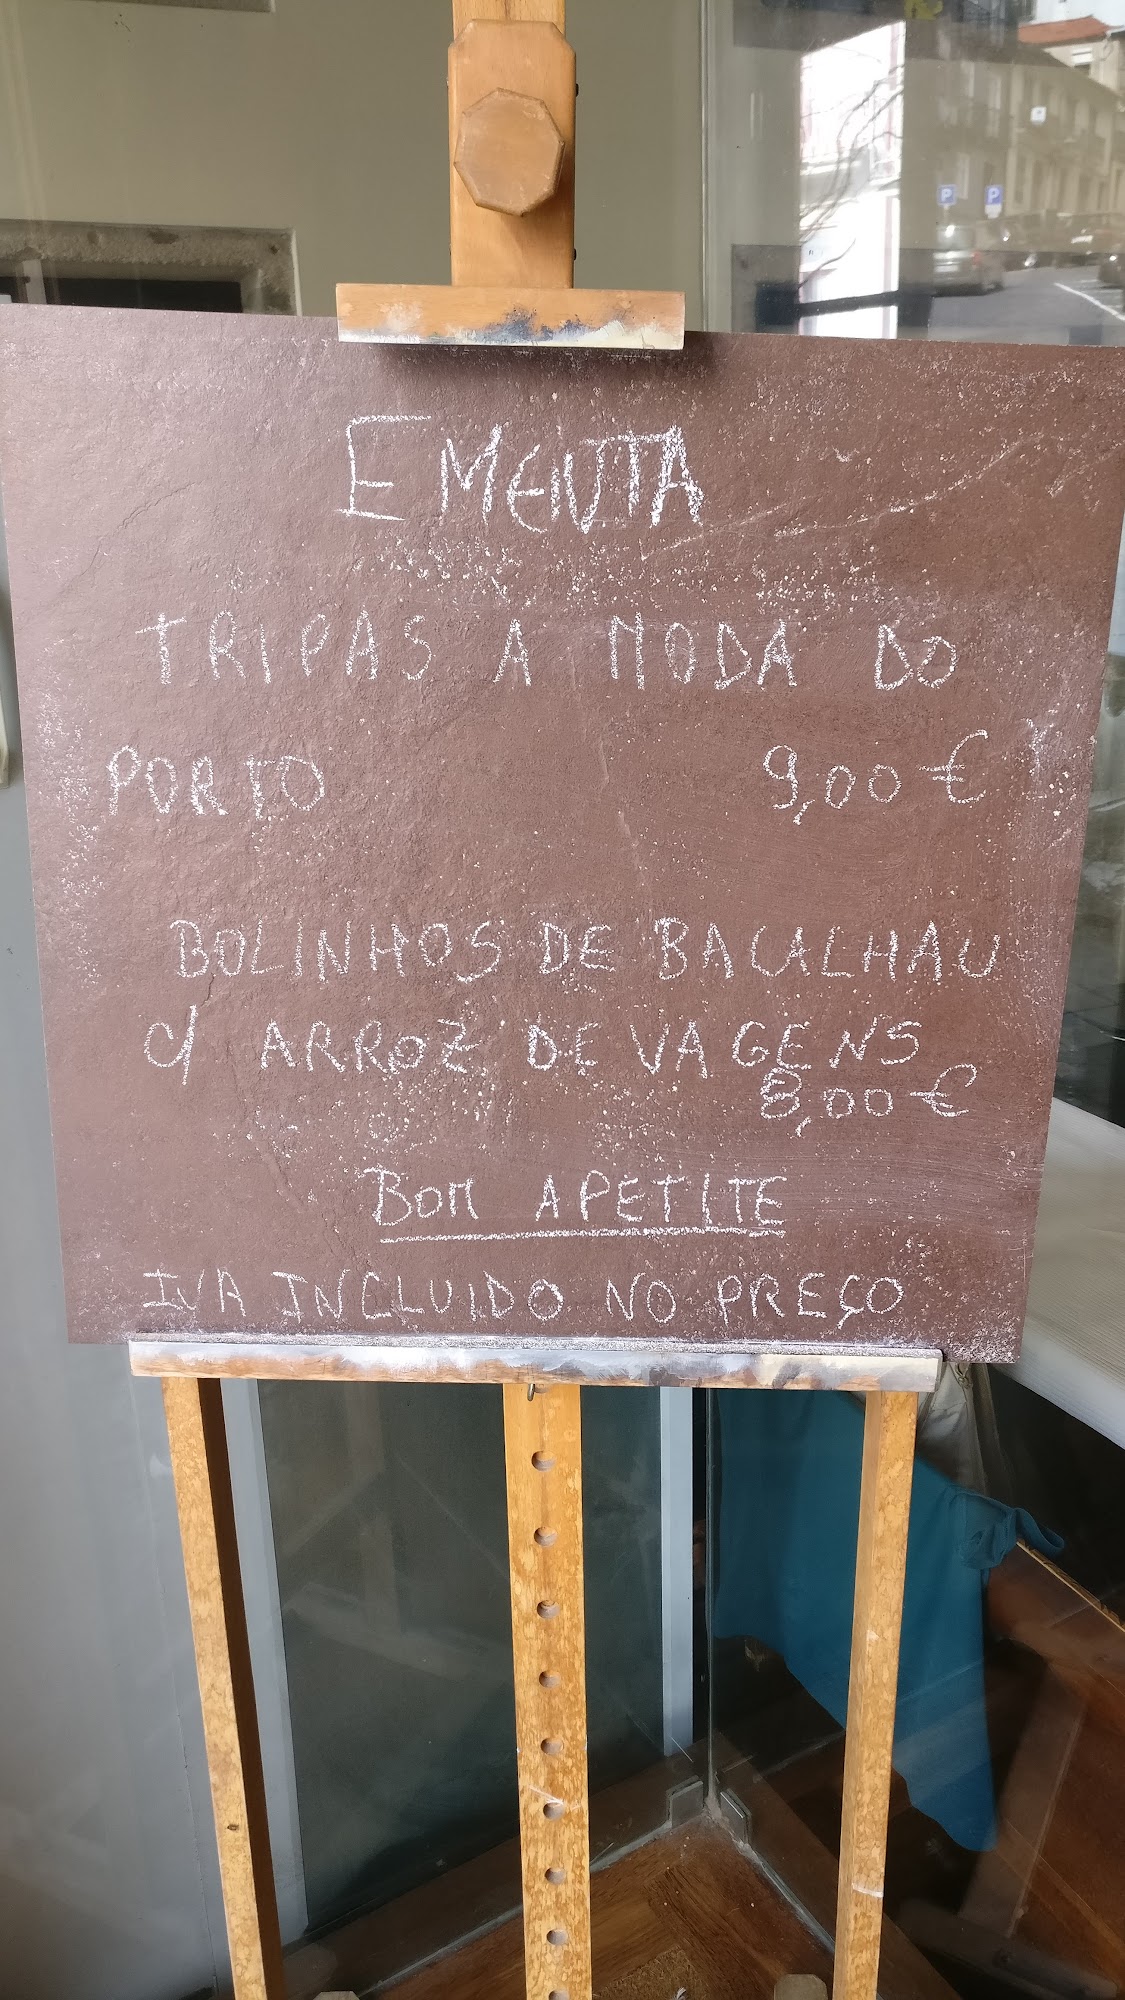 EMENTA
TRIPAS A MODA DO
PORTO 9,00 €
BOLINHOS DE BACALHAU
C/ ARROZ DE VAGENS
8,00 €
BOM APETITE
IVA INCLUIDO NO PREÇO
P P